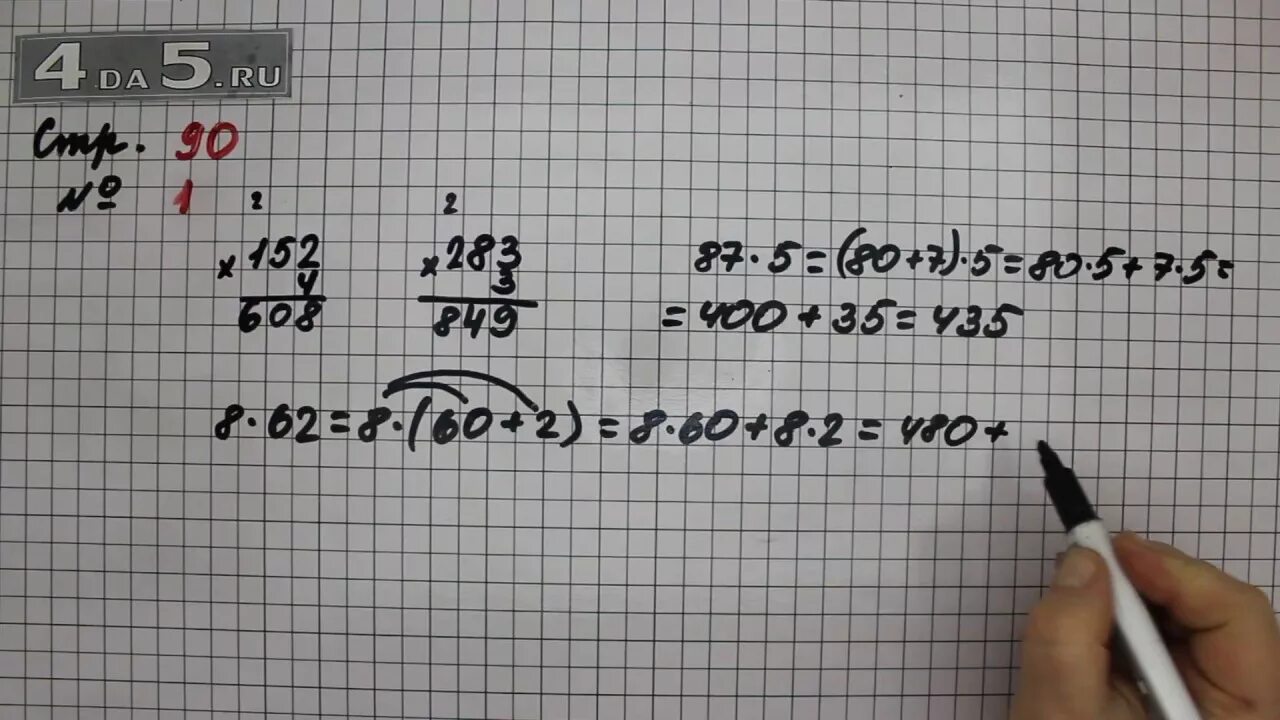 4DA5.RU
Стр. 90
№ 1
2
×152
4
608
2
×283
3
849
87·5=(80+7)·5=80·5+7·5=
=400+35=435
8·62=8·(60+2)=8·60+8·2=480+